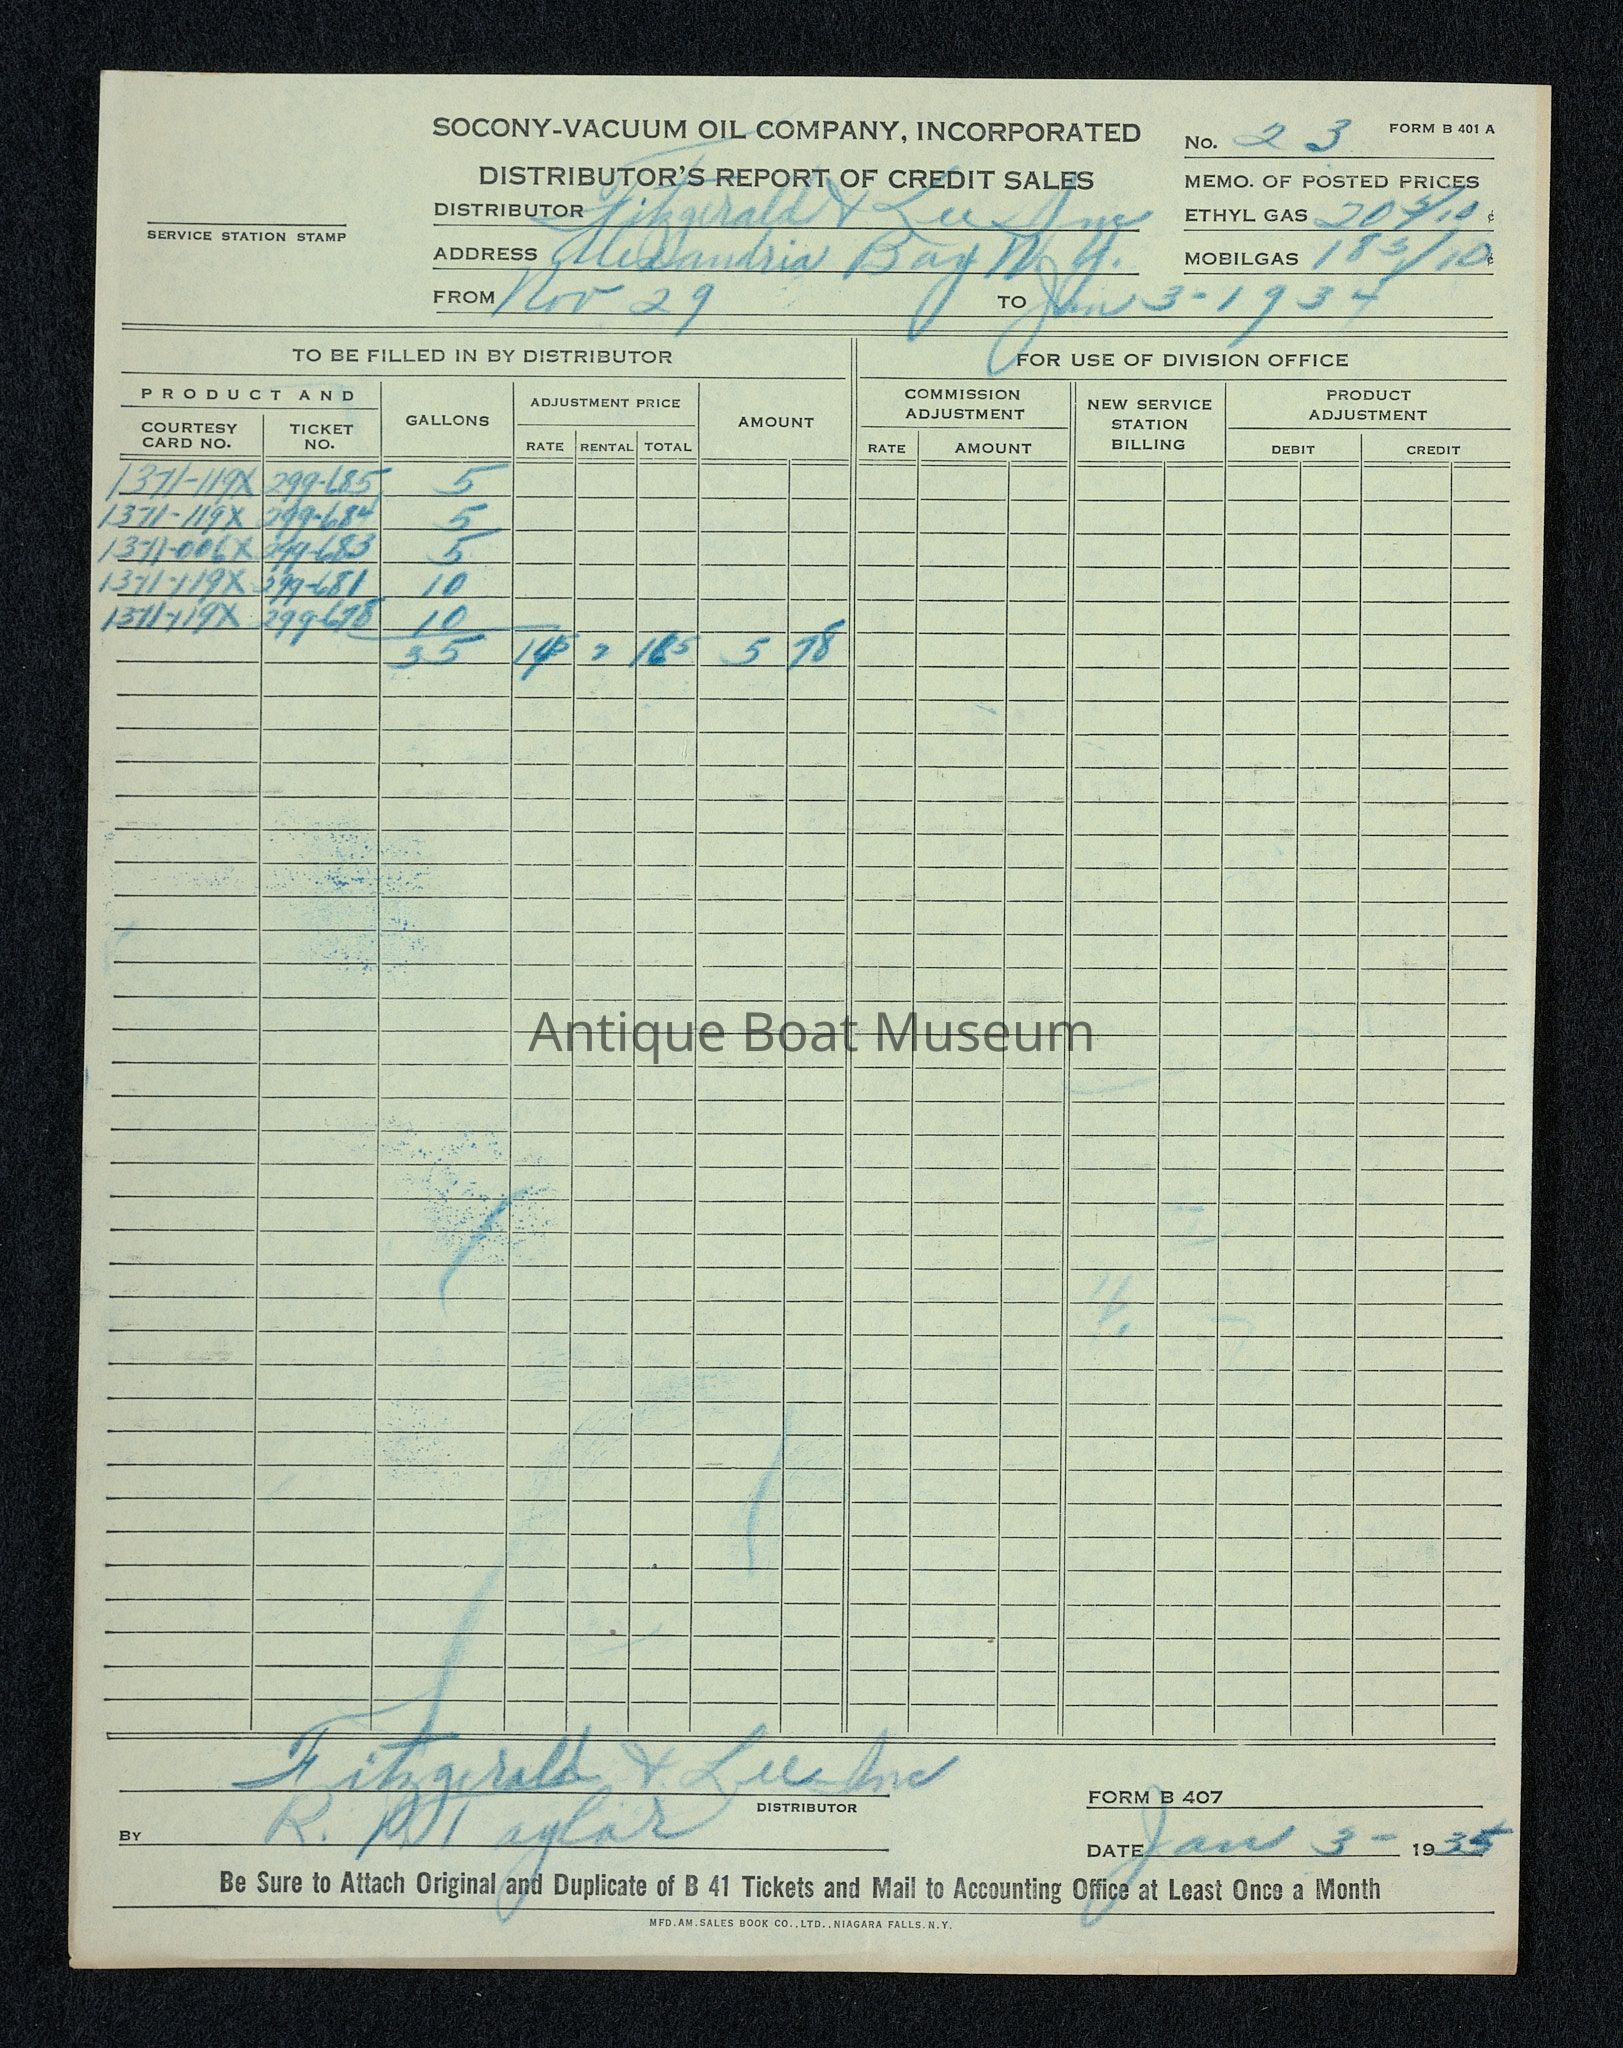 SOCONY-VACUUM OIL COMPANY, INCORPORATED
DISTRIBUTOR'S REPORT OF CREDIT SALES
No. 23 FORM B 401 A
MEMO. OF POSTED PRICES
SERVICE STATION STAMP
DISTRIBUTOR Fitzgerald & Lee Inc
ETHYL GAS 20 3/10 ¢
ADDRESS Alexandria Bay N.Y.
MOBILGAS 18 3/10 ¢
FROM Nov 29 TO Jan 3-1934
TO BE FILLED IN BY DISTRIBUTOR FOR USE OF DIVISION OFFICE
PRODUCT AND GALLONS ADJUSTMENT PRICE AMOUNT COMMISSION ADJUSTMENT NEW SERVICE STATION BILLING PRODUCT ADJUSTMENT
COURTESY CARD NO. TICKET NO. RATE RENTAL TOTAL RATE AMOUNT DEBIT CREDIT
1371-119X 299-685 5
1371-119X 299-684 5
1371-006X 299-683 5
1371-119X 299-681 10
1371-119X 299-678 10
35 145 2 165 5 78
Antique Boat Museum
Fitzgerald & Lee Inc
DISTRIBUTOR
FORM B 407
BY R. Taylor
DATE Jan 3- 1935
Be Sure to Attach Original and Duplicate of B 41 Tickets and Mail to Accounting Office at Least Once a Month
MFD. AM. SALES BOOK CO., LTD., NIAGARA FALLS, N.Y.